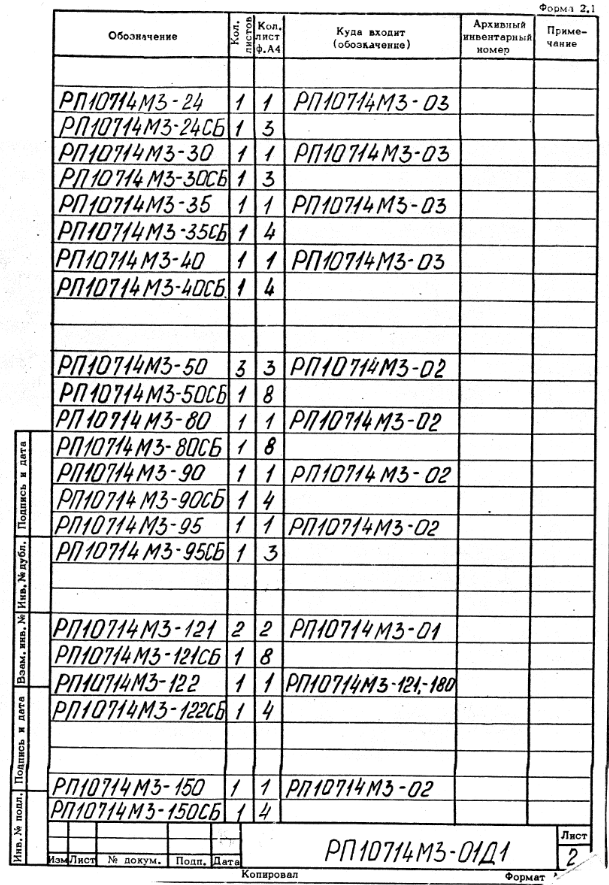 Форма 2.1
Обозначение Кол. листов Кол. лист ф.А4 Куда входит (обозначение) Архивный инвентарный номер Примечание
РП10714М3-24 1 1 РП10714М3-03
РП10714М3-24СБ 1 3
РП10714М3-30 1 1 РП10714М3-03
РП10714М3-30СБ 1 3
РП10714М3-35 1 1 РП10714М3-03
РП10714М3-35СБ 1 4
РП10714М3-40 1 1 РП10714М3-03
РП10714М3-40СБ 1 4
РП10714М3-50 3 3 РП10714М3-02
РП10714М3-50СБ 1 8
РП10714М3-80 1 1 РП10714М3-02
РП10714М3-80СБ 1 8
РП10714М3-90 1 1 РП10714М3-02
РП10714М3-90СБ 1 4
РП10714М3-95 1 1 РП10714М3-02
РП10714М3-95СБ 1 3
РП10714М3-121 2 2 РП10714М3-01
РП10714М3-121СБ 1 8
РП10714М3-122 1 1 РП10714М3-121,-180
РП10714М3-122СБ 1 4
РП10714М3-150 1 1 РП10714М3-02
РП10714М3-150СБ 1 4
Подпись и дата
Инв. № дубл.
Взам. инв. №
Подпись и дата
Инв. № подл.
Изм Лист № докум. Подп. Дата
РП10714М3-01Д1
Лист
2
Копировал Формат